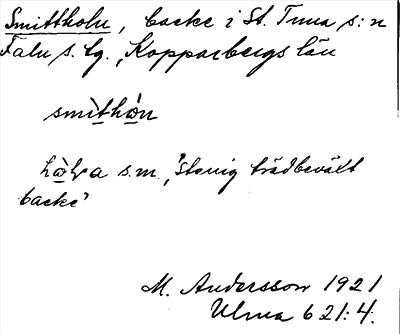 Smittholn, backe i St. Tuna s:n
Falu s. lg., Kopparbergs län
smìthòn
hòḷa s.m. "stenig trädbevält
backe"
M. Andersson 1921
Ulma 621:4.